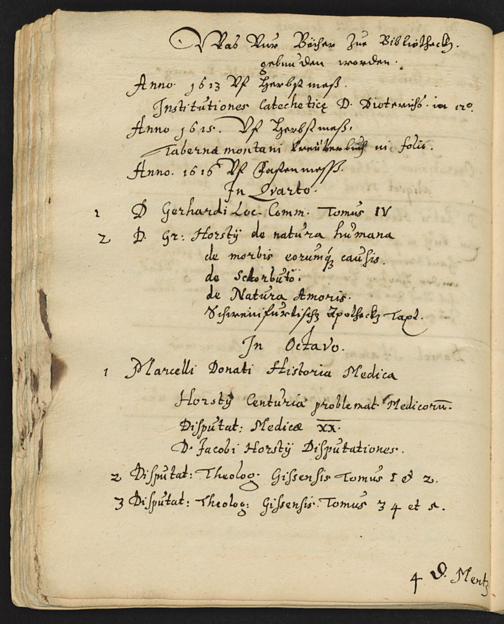 Was Nur Bücher Zur Bibliotheck
gebunden worden.
Anno 1613 Vf Herbstmeß.
Institutiones Catecheticę D. Dieterichs. in 12o.
Anno 1615. Vf Herbstmeß.
Tabernæmontani Kreüterbuch in folio.
Anno. 1616 Vf Fastenmeß.
In Qvarto.
1 D Gerhardi Loc. Comm. Tomus IV
2 D. Gr: Horstÿ de natura humana
de morbis eorumq́ causis.
de Sckorbuto.
de Natura Amoris.
Schweinfurtische Apotheck Tax.
In Octavo.
1 Marcelli Donati Historia Medica
Horstÿ Centuria problemat. Medicorum.
Disputat: Medicæ XX.
D. Jacobi Horstÿ Disputationes.
2 Disputat: Theolog. Gissensis Tomus 1 & 2.
3 Disputat: Theolog: Gissensis. Tomus 3 4 et 5.
4 D. Mentz